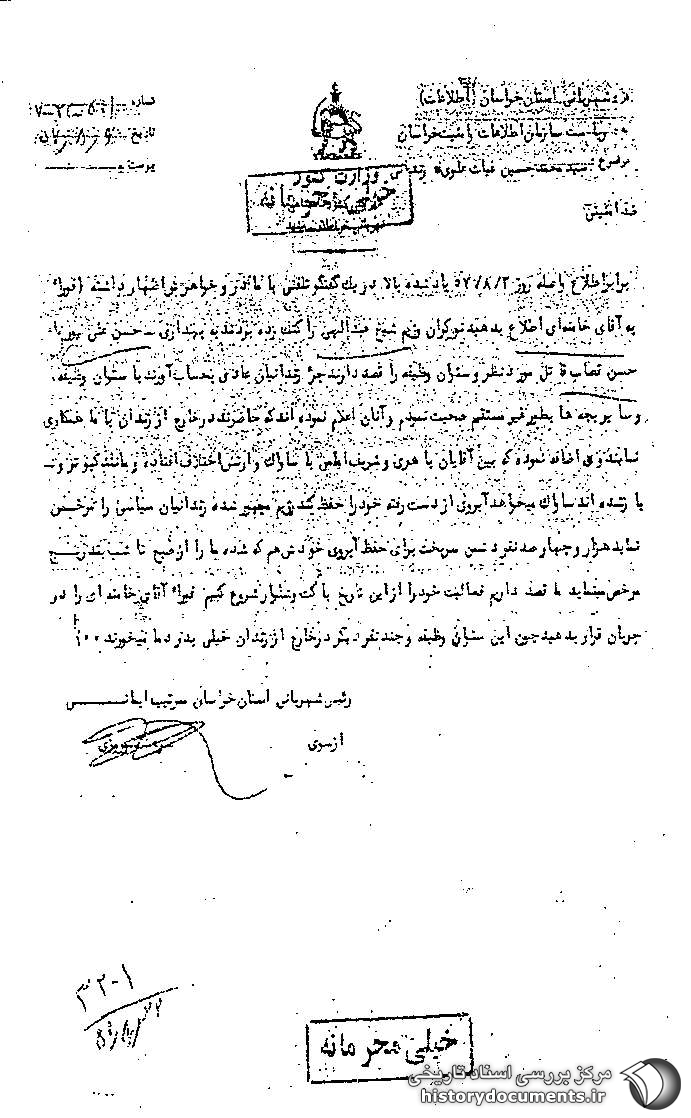 از شهربانی استان خراسان (اطلاعات)
به ریاست سازمان اطلاعات و امنیت خراسان
موضوع سید محمد حسین غیاث علوی
شماره
تاریخ
پیوست
وزارت کشور
خیلی محرمانه
برابر اطلاع واصله روز ۵۷/۸/۲ یاد شده بالا در یک گفتگو تلفنی با مادر و خواهر خود اظهار داشته (فورا"
به آقای خامنه‌ای اطلاع بدهید نوکران رژیم شیخ عبدالهی را کتک زده بردند به بهداری - حسن علی پور یا
حسن قصاب قاتل مورد نظر و ستوان وظیفه را قصد دارند جزء زندانیان عادی بحساب آورند با ستوان وظیفه
و سایر بچه ها بطور غیر مستقیم صحبت نمودم و آنان اعلام نموده اند که حاضرند در خارج از زندان با ما همکاری
نمایند وی اضافه نموده که بین آقایان با ساواک و ارتش اختلاف افتاده و مانند کبوتر
ساواک میخواهد آبروی از دست رفته خود را حفظ کند رژیم مجبور شده زندانیان سیاسی را مرخص
نماید هزار و چهار صد نفر دشمن سرسخت برای حفظ آبروی خودش هم که شده ما را از صبح تا شب بتدریج
مرخص مینماید ما قصد داریم فعالیت خود را از این تاریخ با کشت و کشتار شروع کنیم فورا" آقای خامنه ای را در
جریان قرار بدهید چون این ستوان وظیفه و چند نفر دیگر در خارج از زندان خیلی بدرد ما میخورند ۰۰۰
رئیس شهربانی استان خراسان سرتیپ
از سوی
۳۲-۱
خیلی محرمانه
مرکز بررسی اسناد تاریخی
historydocuments.ir